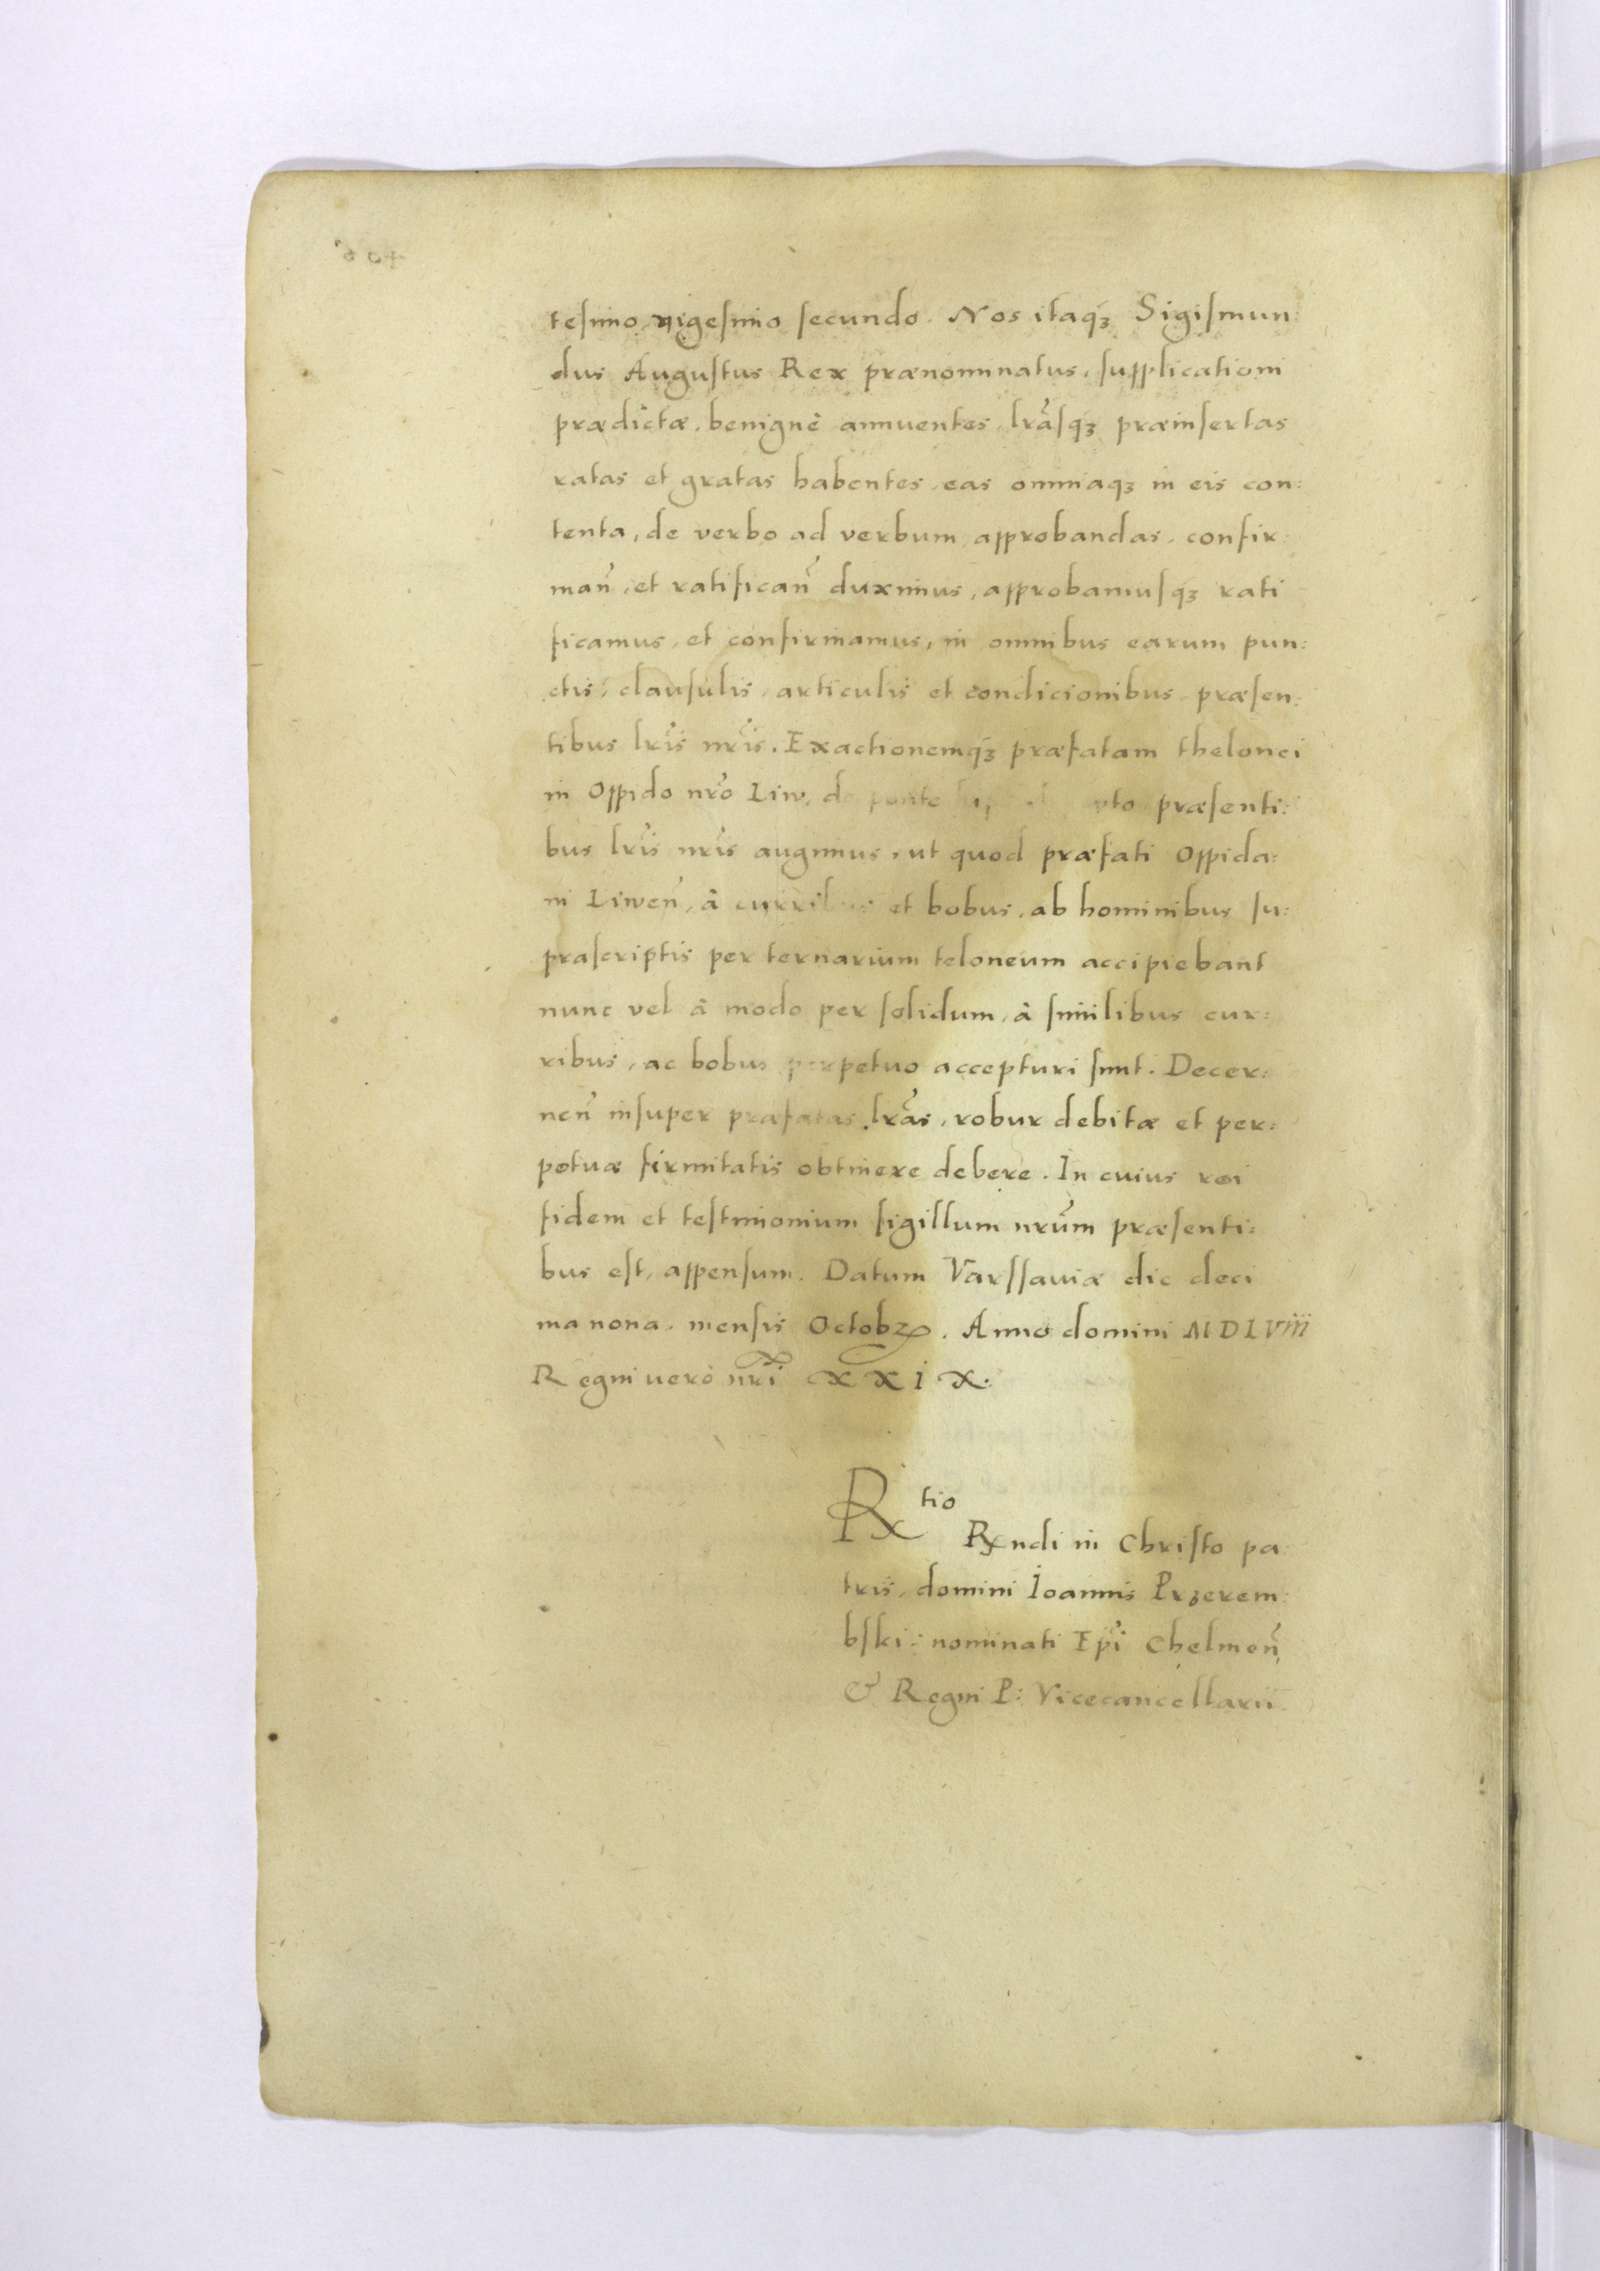 tesimo vigesimo secundo. Nos itaqꝫ Sigiſmun:
dus Auguſtus Rex prænominatus, ſupplicationi
prædictæ, benignè annuentes, lr̃aſqꝫ præinſertas
ratas et gratas habentes, eas omniaqꝫ in eis con:
tenta, de verbo ad verbum approbandas, confir:
mañ, et ratificañ duximus, approbamuſqꝫ rati
ficamus, et confirmamus, in omnibus earum pun:
ctis, clauſulis, articulis et condicionibus præſen:
tibus lr̃is nr̃is. Exactionemqꝫ præfatam thelonei
in Oppido nr̃o Liw, de ponte præſenti:
bus lr̃is nr̃is augimus, ut quod præfati Oppida:
ni Liweñ, à curribus et bobus, ab hominibus ſu:
praſcriptis per ternarium teloneum accipiebant
nunc vel à modo per ſolidum, à ſimilibus cur:
ribus, ac bobus perpetuo accepturi ſint. Decer:
neñ inſuper præfatas lr̃as, robur debitæ et per:
petuæ firmitatis obtinere debere. In cuius rei
fidem et teſtimonium ſigillum nr̃um præſenti:
bus eſt, appenſum. Datum Varſſaviæ die deci
ma nona, menſis Octobꝝ. Anno domini MDLViii
Regni verò nr̃i XXIX.
Rtio
Rndi in Chriſto pa
tris, domini Ioannis Przerem:
bſki: nominati Ep̃i Chelmeñ
& Regni P: Vicecancellarii